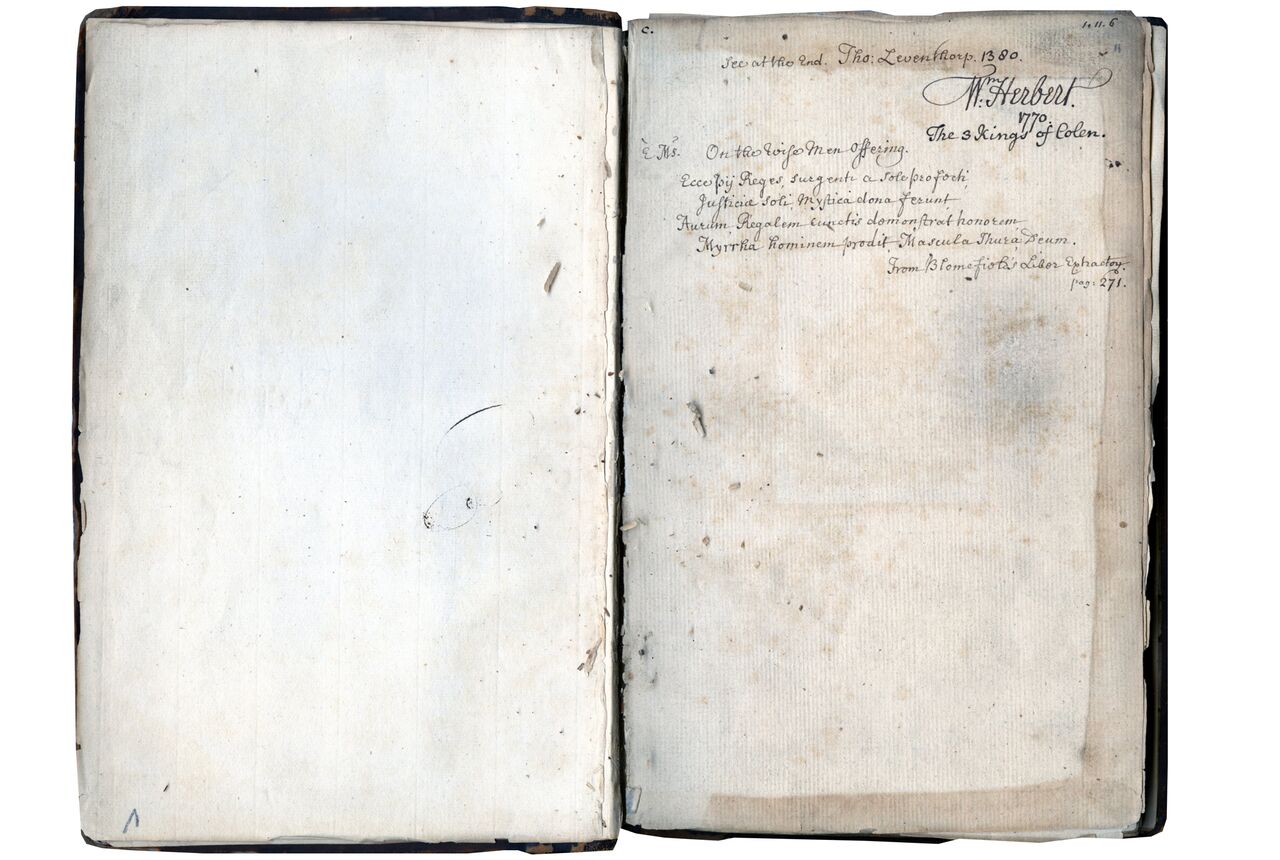 c.
1.11.6
See at the End. Tho: Leventhorp. 1380.
Wm. Herbert.
1770.
The 3 Kings of Colen.
E Ms. On the Wise Men Offering.
Ecce pij Reges, surgenti a sole profecti,
Justiciæ soli, Mystica dona ferunt
Aurum, Regalem cunctis demonstrat honorem,
Myrrha hominem prodit, Mascula Thura Deum.
From Blomefield's Liber Extractor.
pag: 271.